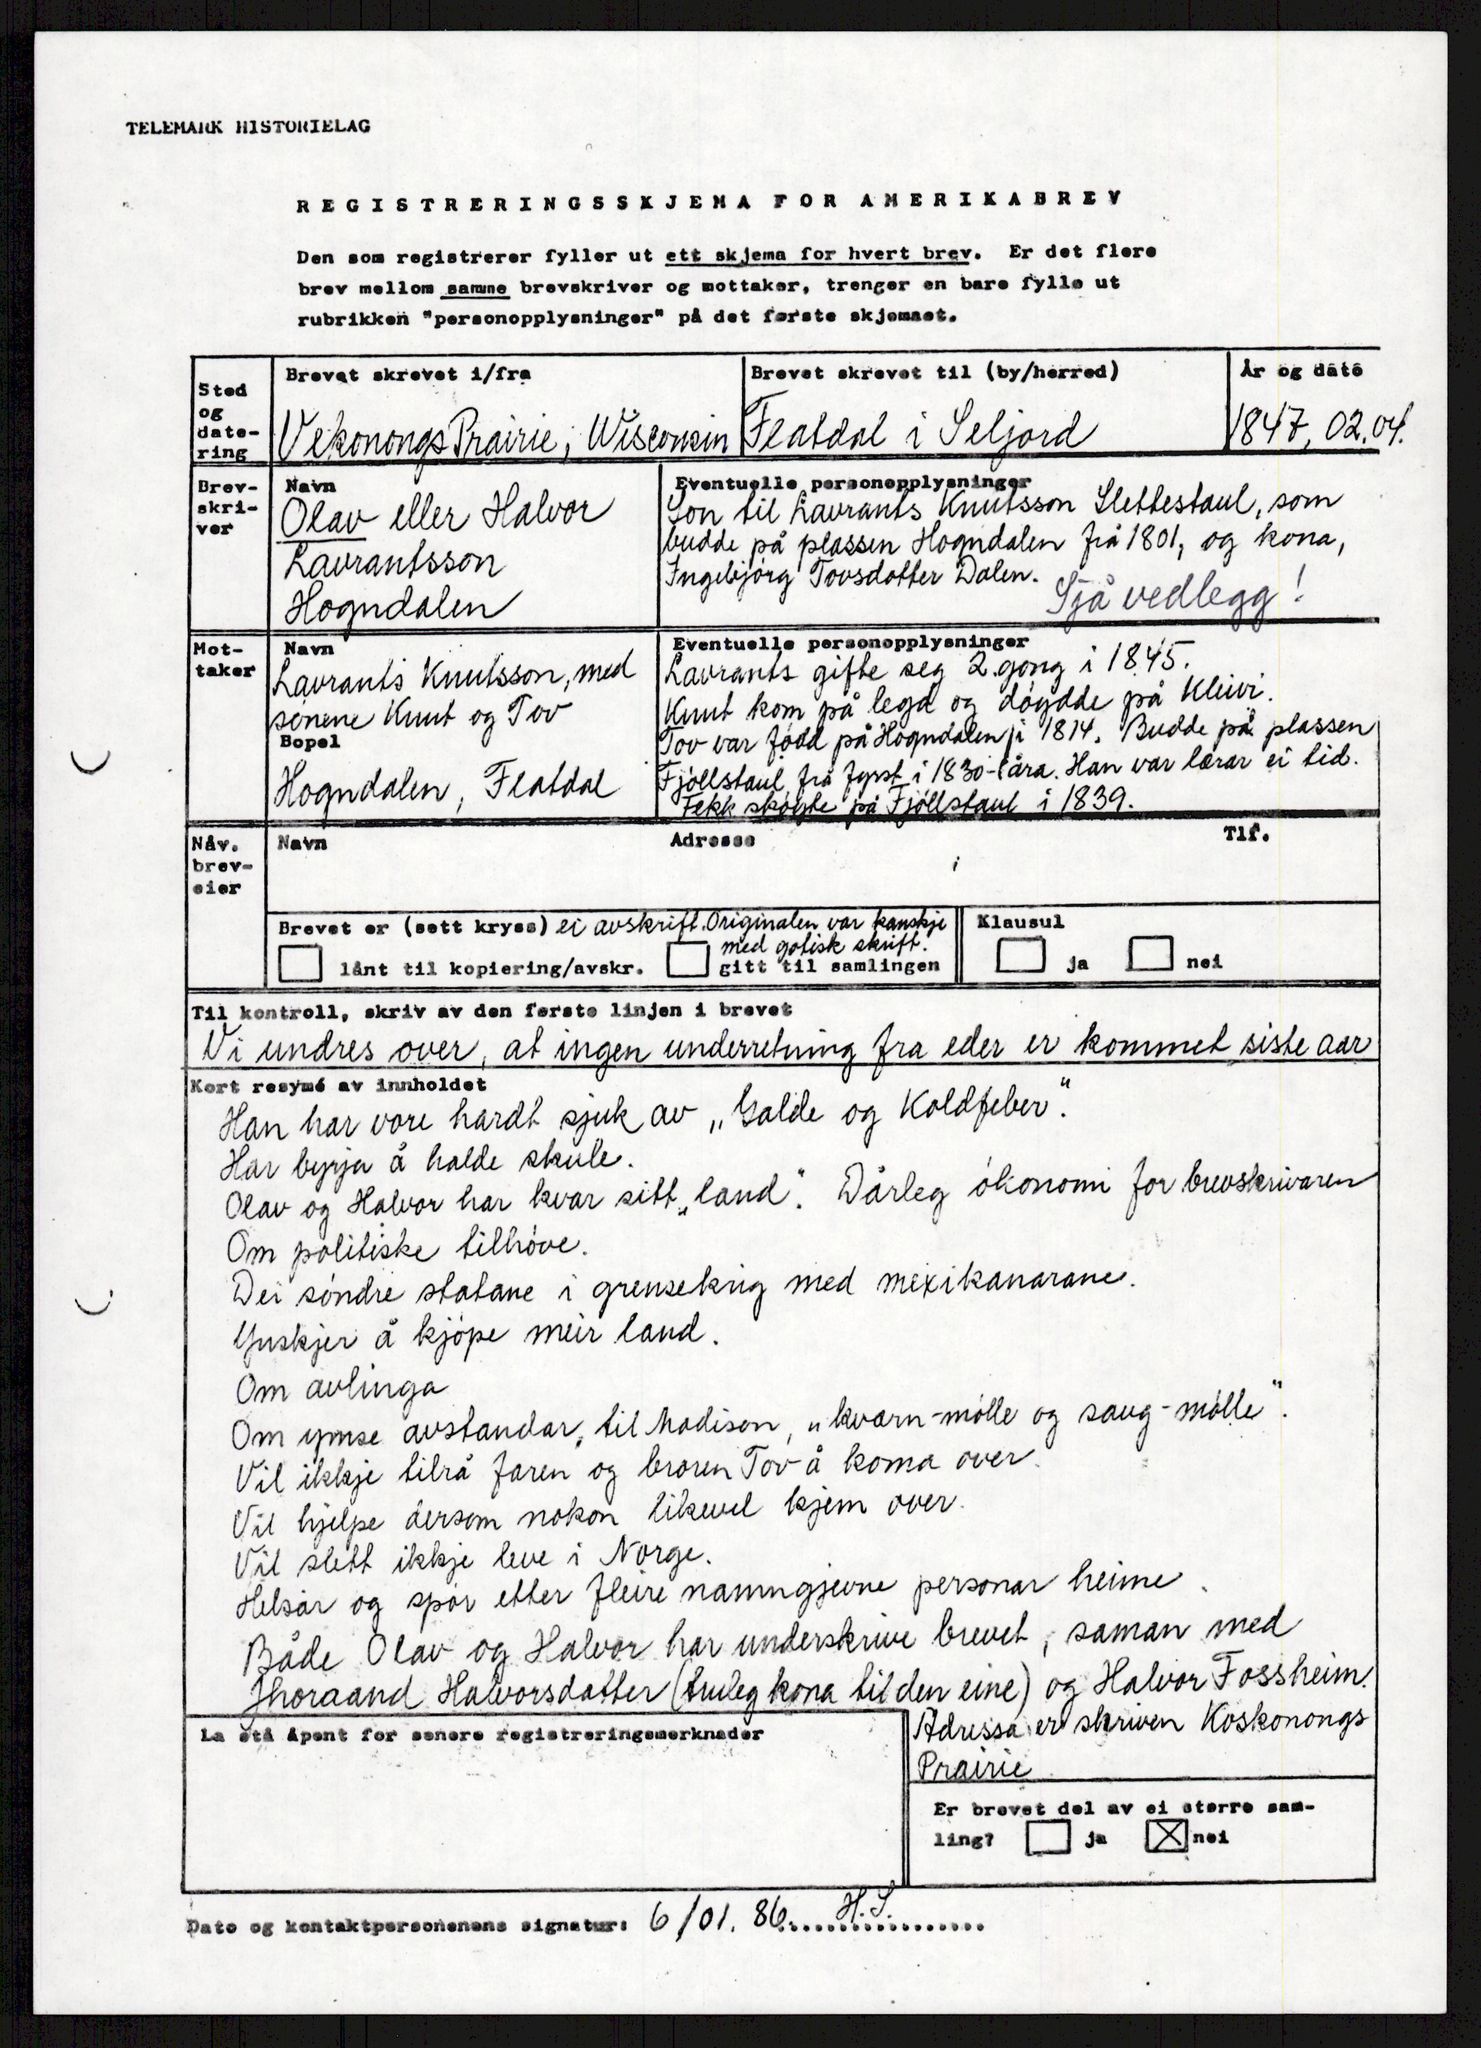 TELEMARK HISTORIELAG
REGISTRERINGSSKJEMA FOR AMERIKABREV
Den som registrerer fyller ut ett skjema for hvert brev. Er det flere
brev mellom samme brevskriver og mottaker, trenger en bare fylle ut
rubrikken "personopplysninger" på det første skjemaet.
Sted
og
date-
ring
Brevet skrevet i/fra
Vekonongs Prairie, Wisconsin
Brevet skrevet til (by/herred)
Flatdal i Seljord
År og dato
1847, 02.04.
Brev-
skri-
ver
Navn
Olav eller Halvor
Lavrantsson
Hogndalen
Eventuelle personopplysninger
Son til Lavrants Knutsson Slettestaul, som
budde på plassen Hogndalen frå 1801, og kona,
Ingebjørg Tovsdotter Dalen.
Sjå vedlegg!
Mot-
taker
Navn
Lavrants Knutsson, med
sønene Knut og Tov
Bopel
Hogndalen, Flatdal
Eventuelle personopplysninger
Lavrants gifte seg 2. gong i 1845.
Knut kom på legd og døydde på Kleivi.
Tov var fødd på Hogndalen i 1814. Budde på plassen
Fjøllstaul frå fyrst i 1830-åra. Han var lærar ei tid.
Fekk skøyte på Fjøllstaul i 1839.
Nåv.
brev-
eier
Navn
Adresse
Tlf.
Brevet er (sett kryss) ei avskrift. Originalen var kanskje
med gotisk skrift.
lånt til kopiering/avskr.
gitt til samlingen
Klausul
ja
nei
Til kontroll, skriv av den første linjen i brevet
Vi undres over, at ingen underretning fra eder er kommet siste aar
Kort resymé av innholdet
Han har vore hardt sjuk av „Galde og Koldfeber".
Har byrja å halde skule.
Olav og Halvor har kvar sitt „land". Dårleg økonomi for brevskrivaren
Om politiske tilhøve.
Dei søndre statane i grensekrig med mexikanarane.
Ynskjer å kjøpe meir land.
Om avlinga
Om ymse avstandar, til Madison, „kværn-mølle og saug-mølle".
Vil ikkje tilrå faren og broren Tov å koma over.
Vil hjelpe dersom nokon likevel kjem over.
Vil slett ikkje leve i Norge.
Helsar og spør etter fleire namngjevne personar heime.
Både Olav og Halvor har underskrive brevet, saman med
Thoraand Halvorsdatter (truleg kona til den eine) og Halvor Fossheim.
La stå åpent for senere registreringsmerknader
Adressa er skriven Koskonongs
Prairie
Er brevet del av ei større sam-
ling? ja nei
Dato og kontaktpersonenens signatur: 6/01. 86 H. S.